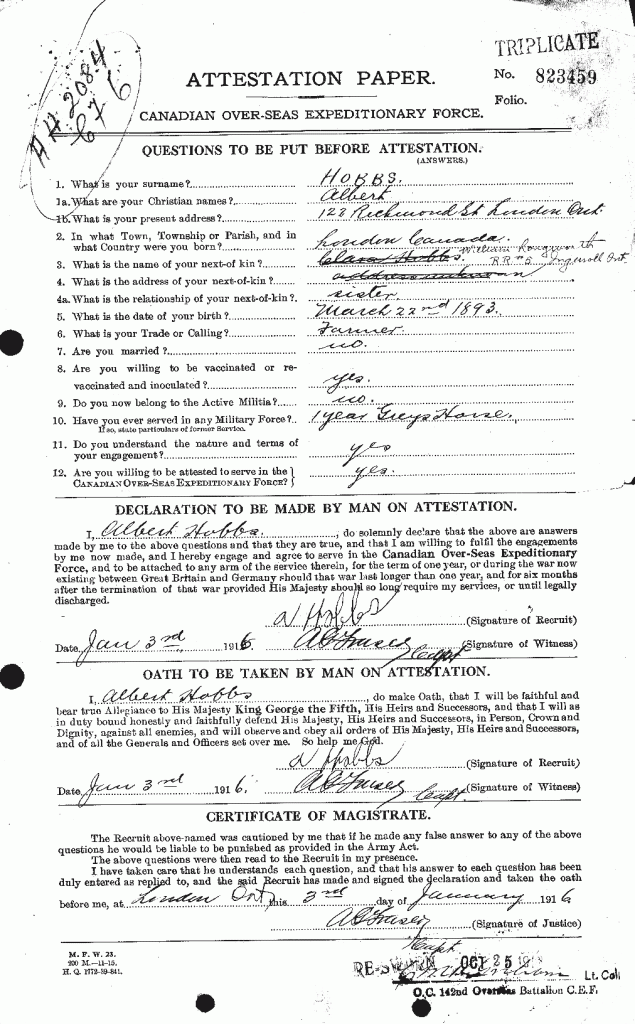 TRIPLICATE
No. 823459
Folio.
ATTESTATION PAPER.
CANADIAN OVER-SEAS EXPEDITIONARY FORCE.
QUESTIONS TO BE PUT BEFORE ATTESTATION.
(ANSWERS.)
1. What is your surname? HOBBS.
1a. What are your Christian names? Albert
1b. What is your present address? 128 Richmond St London Ont.
2. In what Town, Township or Parish, and in
what Country were you born? London Canada.
3. What is the name of your next-of kin? Clara Hobbs. William
4. What is the address of your next-of-kin? address unknown R.R. #5 Ingersoll Ont.
4a. What is the relationship of your next-of-kin? sister
5. What is the date of your birth? March 22nd 1893.
6. What is your Trade or Calling? Farmer
7. Are you married? no.
8. Are you willing to be vaccinated or re-
vaccinated and inoculated? yes.
9. Do you now belong to the Active Militia? no.
10. Have you ever served in any Military Force? 1 year Greys Horse.
If so, state particulars of former Service.
11. Do you understand the nature and terms of
your engagement? yes
12. Are you willing to be attested to serve in the
CANADIAN OVER-SEAS EXPEDITIONARY FORCE? yes.
DECLARATION TO BE MADE BY MAN ON ATTESTATION.
I, Albert Hobbs. , do solemnly declare that the above are answers
made by me to the above questions and that they are true, and that I am willing to fulfil the engagements
by me now made, and I hereby engage and agree to serve in the Canadian Over-Seas Expeditionary
Force, and to be attached to any arm of the service therein, for the term of one year, or during the war now
existing between Great Britain and Germany should that war last longer than one year, and for six months
after the termination of that war provided His Majesty should so long require my services, or until legally
discharged.
A Hobbs (Signature of Recruit)
Date Jan 3rd 1916 A C Fraser Capt (Signature of Witness)
OATH TO BE TAKEN BY MAN ON ATTESTATION.
I, Albert Hobbs , do make Oath, that I will be faithful and
bear true Allegiance to His Majesty King George the Fifth, His Heirs and Successors, and that I will as
in duty bound honestly and faithfully defend His Majesty, His Heirs and Successors, in Person, Crown and
Dignity, against all enemies, and will observe and obey all orders of His Majesty, His Heirs and Successors,
and of all the Generals and Officers set over me. So help me God.
A Hobbs (Signature of Recruit)
Date Jan 3rd 1916. A C Fraser Capt. (Signature of Witness)
CERTIFICATE OF MAGISTRATE.
The Recruit above-named was cautioned by me that if he made any false answer to any of the above
questions he would be liable to be punished as provided in the Army Act.
The above questions were then read to the Recruit in my presence.
I have taken care that he understands each question, and that his answer to each question has been
duly entered as replied to, and the said Recruit has made and signed the declaration and taken the oath
before me, at London Ont this 3rd day of January 1916
A C Fraser (Signature of Justice)
Capt
M. F. W. 23.
200 M.—11-15.
H. Q. 1772-39-841.
RE-SWORN OCT 25 191
Lt. Col
O.C. 142nd Overseas Battalion C.E.F.